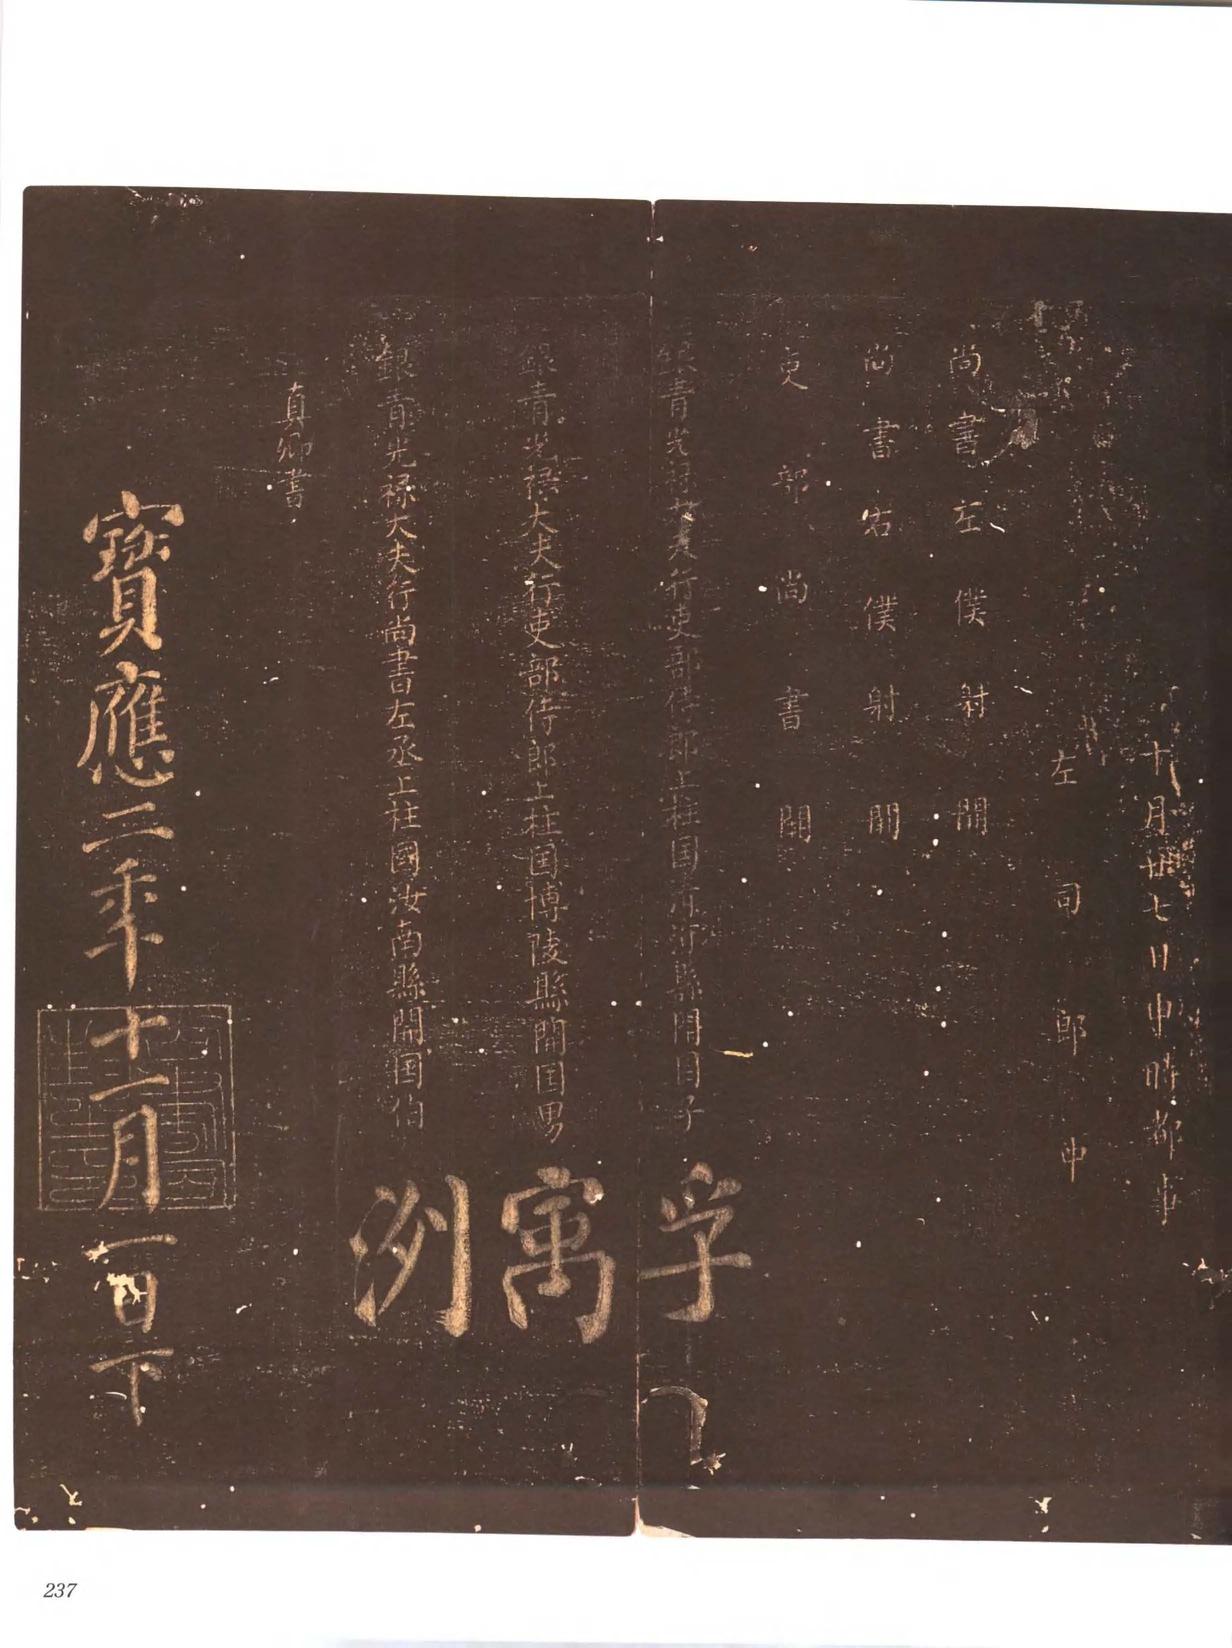 十月廿七日申時都事
左司郎中
尚書左僕射開
尚書右僕射開
吏部尚書開
銀青光祿大夫行吏部侍郎上柱国清河縣開国子 孚
銀青光祿大夫行吏部侍郎上柱国博陵縣開国男 寓
銀青光祿大夫行尚書左丞上柱國汝南縣開国伯 洌
真卿書
寶應二年十一月一日下
237